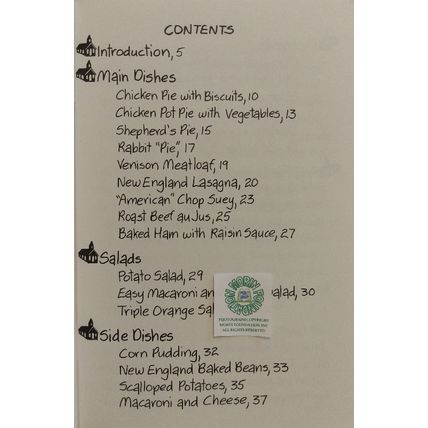 CONTENTS
Introduction, 5
Main Dishes
Chicken Pie with Biscuits, 10
Chicken Pot Pie with Vegetables, 13
Shepherd's Pie, 15
Rabbit "Pie", 17
Venison Meatloaf, 19
New England Lasagna, 20
"American" Chop Suey, 23
Roast Beef au Jus, 25
Baked Ham with Raisin Sauce, 27
Salads
Potato Salad, 29
Easy Macaroni an alad, 30
Triple Orange Sal
MORIN FOUNDATION
PHOTOGRAPH COPYRIGHT
MORIN FOUNDATION, INC
ALL RIGHTS RESERVED
Side Dishes
Corn Pudding, 32
New England Baked Beans, 33
Scalloped Potatoes, 35
Macaroni and Cheese, 37